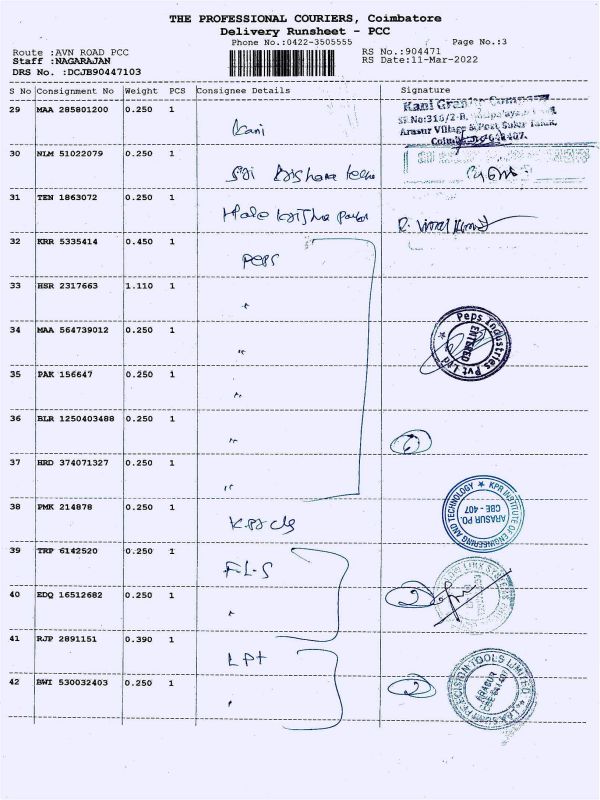 THE PROFESSIONAL COURIERS, Coimbatore
Delivery Runsheet - PCC
Phone No.:0422-3505555 Page No.:3
Route :AVN ROAD PCC RS No.:904471
Staff :NAGARAJAN RS Date:11-Mar-2022
DRS No. :DCJB90447103
S No Consignment No Weight PCS Consignee Details Signature
29 MAA 285801200 0.250 1 Kani
Kani Company
SF.No:316/2-B,
Arasur Village & Post Sulur Taluk,
30 NLM 51022079 0.250 1
31 TEN 1863072 0.250 1 R. Vimal Kumar
32 KRR 5335414 0.450 1 Peps
33 HSR 2317663 1.110 1 "
34 MAA 564739012 0.250 1 "
Peps Industries Pvt Ltd
ENTERED
35 PAK 156647 0.250 1 "
36 BLR 1250403488 0.250 1 "
6
37 HRD 374071327 0.250 1 "
38 PMK 214878 0.250 1
KPR INSTITUTE OF ENGINEERING AND TECHNOLOGY
ARASUR PO,
CBE - 407
39 TRP 6142520 0.250 1 FLS
40 EDQ 16512682 0.250 1 "
2
41 RJP 2891151 0.390 1 LPT
42 BWI 530032403 0.250 1 "
2
PRECISION TOOLS LIMITED
ARASUR